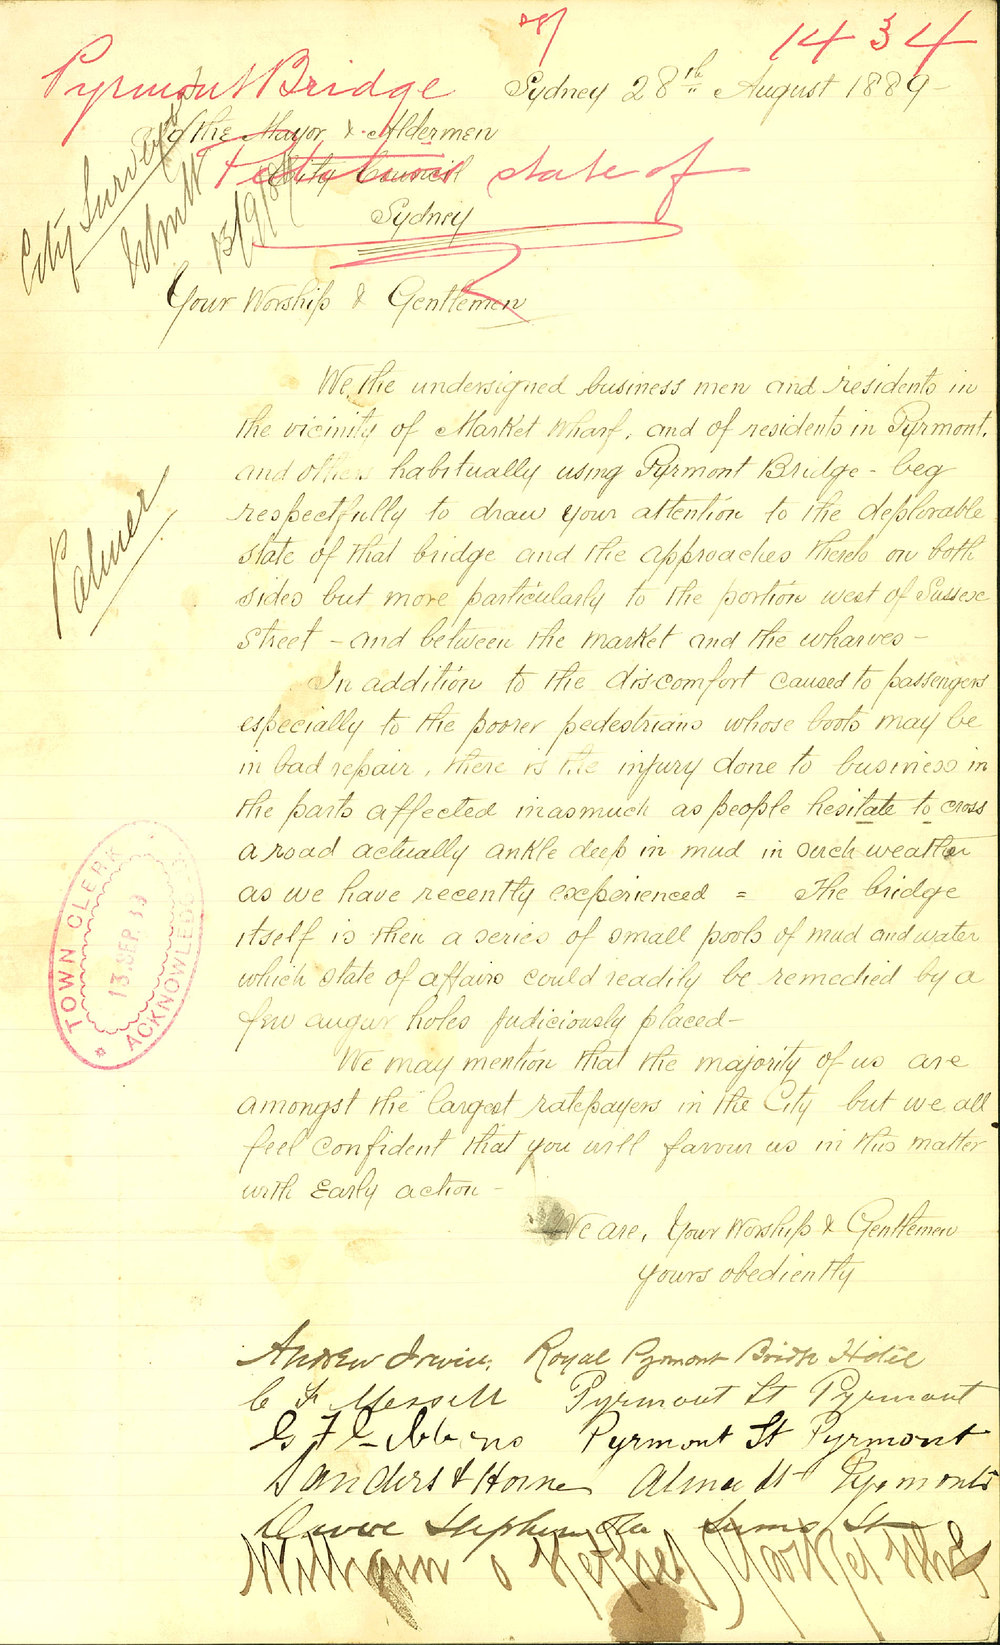 1434
Pyrmont Bridge
Sydney 28th August 1889 -
To the Mayor & Aldermen
City Council
state of
Sydney
City Surveyor
13/9/89
Your Worship & Gentlemen
We, the undersigned business men and residents in
the vicinity of Market Wharf, and of residents in Pyrmont,
and others habitually using Pyrmont Bridge - beg
respectfully to draw your attention to the deplorable
state of that bridge and the approaches thereto on both
sides but more particularly to the portion west of Sussex
Street - and between the market and the wharves -
Palmer
In addition to the discomfort caused to passengers
especially to the poorer pedestrians whose boots may be
in bad repair, there is the injury done to business in
the parts affected inasmuch as people hesitate to cross
a road actually ankle deep in mud in such weather
as we have recently experienced = The bridge
itself is then a series of small pools of mud and water
which state of affairs could readily be remedied by a
few augur holes judiciously placed -
TOWN CLERK
13. SEP. 89
ACKNOWLEDGED
We may mention that the majority of us are
amongst the largest ratepayers in the City but we all
feel confident that you will favour us in this matter
with Early action -
We are, Your Worship & Gentlemen
yours obediently
Andrew Irwin, Royal Pyrmont Bridge Hotel
C F Messell Pyrmont St Pyrmont
G F Gibbens Pyrmont St Pyrmont
Sanders & Horne Alma St Pyrmont
Stephen St
William